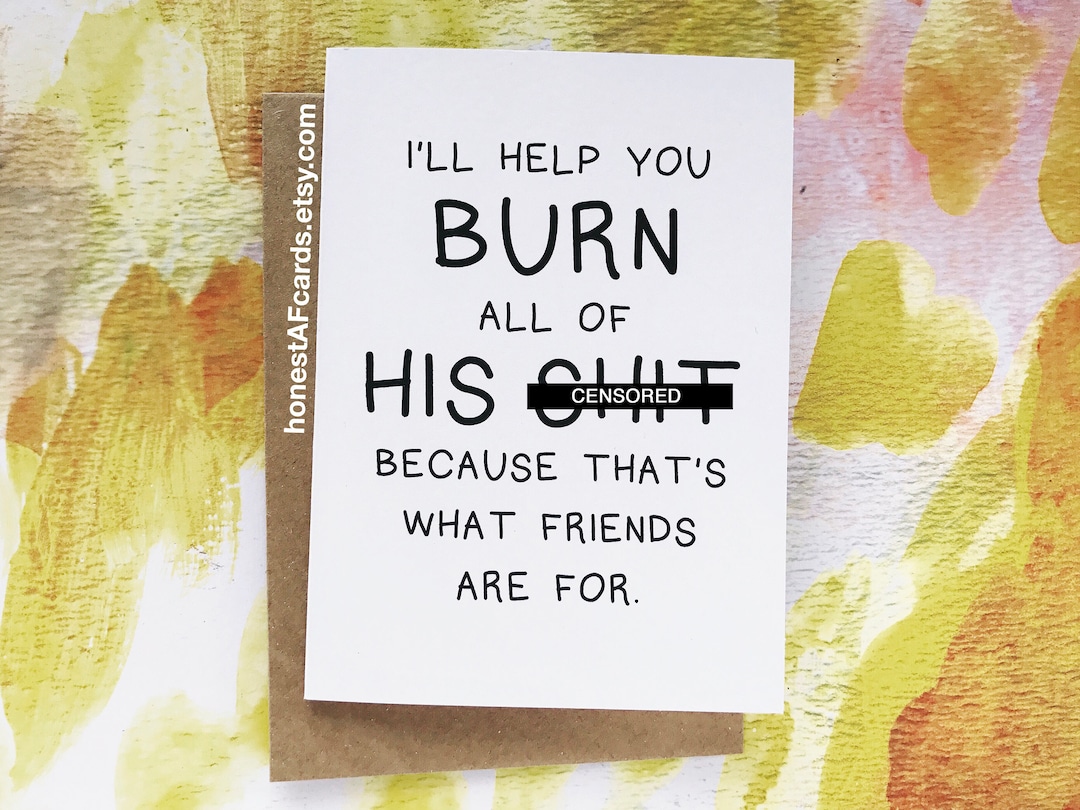 honestAFcards.etsy.com
I'LL HELP YOU
BURN
ALL OF
HIS SHIT
CENSORED
BECAUSE THAT'S
WHAT FRIENDS
ARE FOR.